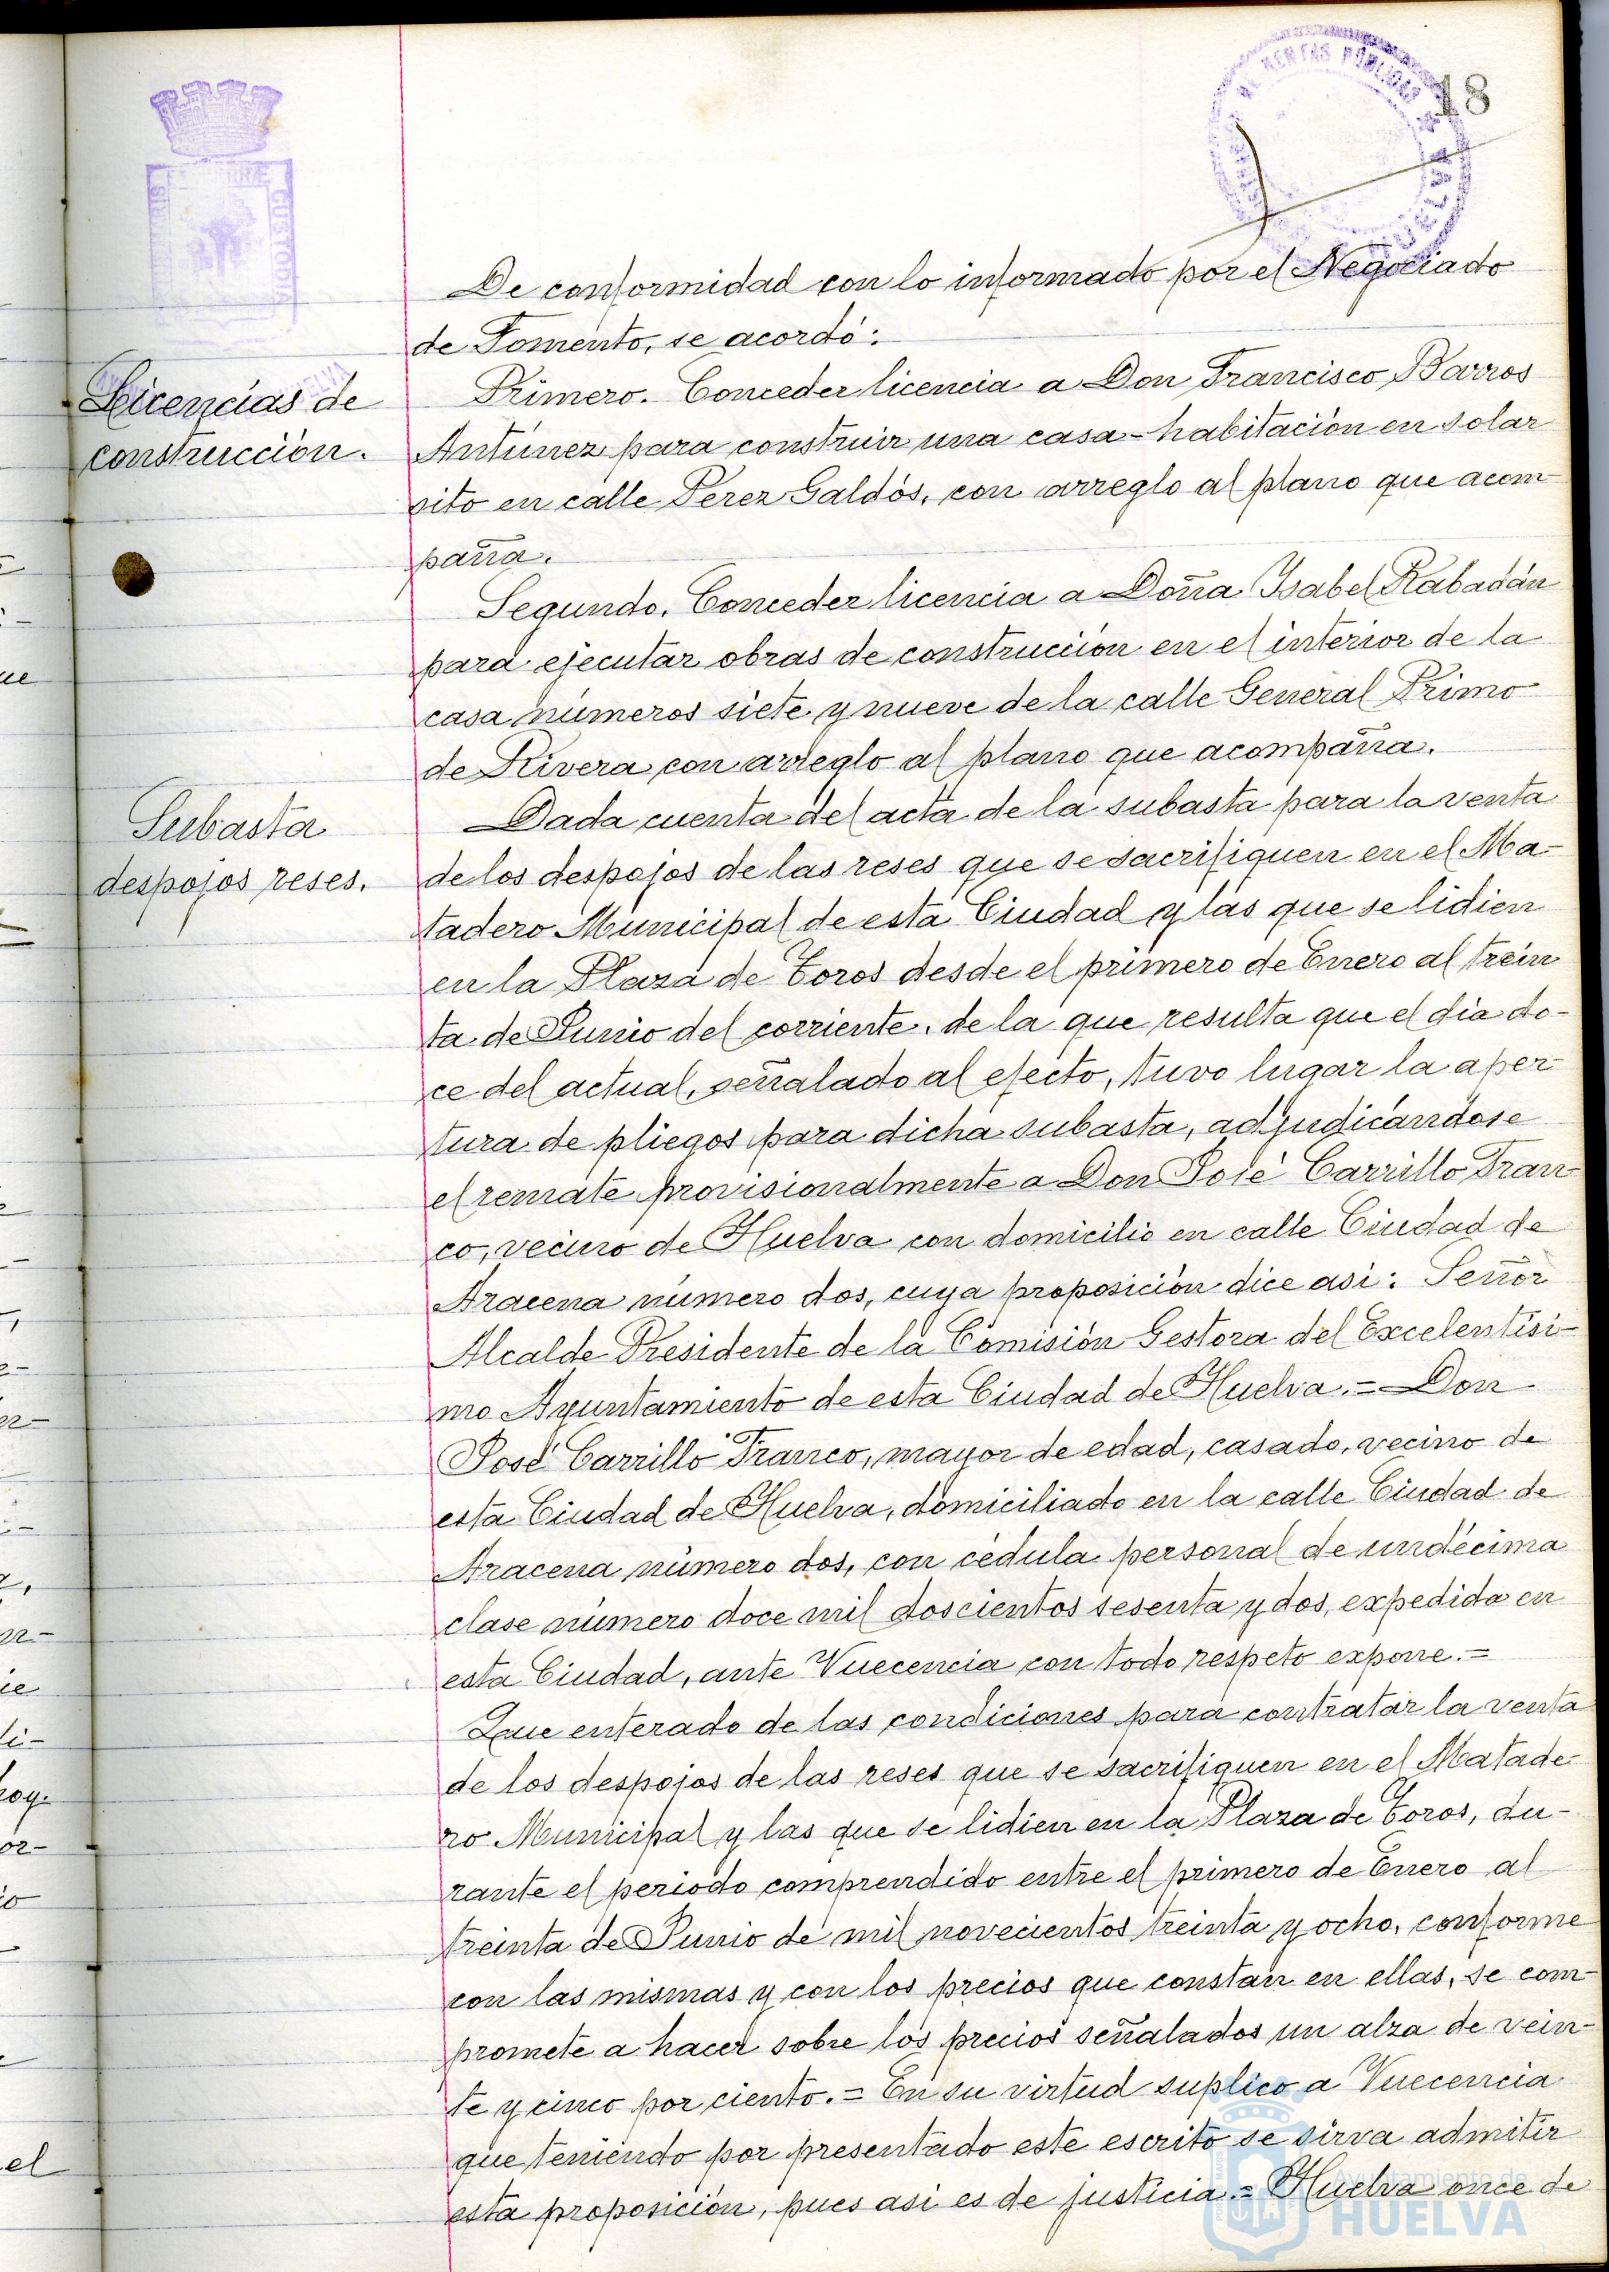 18
De conformidad con lo informado por el Negociado
de Fomento, se acordó:
Licencias de
construcción.
Primero. Conceder licencia a Don Francisco Barros
Antúnez para construir una casa-habitación en solar
sito en calle Perez Galdós, con arreglo al plano que acom-
paña.
Segundo. Conceder licencia a Doña Isabel Rabadán
para ejecutar obras de construcción en el interior de la
casa números siete y nueve de la calle General Primo
de Rivera con arreglo al plano que acompaña.
Subasta
despojos reses.
Dada cuenta del acta de la subasta para la venta
de los despojos de las reses que se sacrifiquen en el Ma-
tadero Municipal de esta Ciudad y las que se lidien
en la Plaza de Toros desde el primero de Enero al trein
ta de Junio del corriente, de la que resulta que el día do-
ce del actual, señalado al efecto, tuvo lugar la aper-
tura de pliegos para dicha subasta, adjudicándose
el remate provisionalmente a Don José Carrillo Fran-
co, vecino de Huelva con domicilio en calle Ciudad de
Aracena número dos, cuya proposición dice así: Señor
Alcalde Presidente de la Comisión Gestora del Excelentísi-
mo Ayuntamiento de esta Ciudad de Huelva.= Don
José Carrillo Franco, mayor de edad, casado, vecino de
esta Ciudad de Huelva, domiciliado en la calle Ciudad de
Aracena número dos, con cédula personal de undécima
clase número doce mil doscientos sesenta y dos, expedida en
esta Ciudad, ante Vuecencia con todo respeto expone.=
Que enterado de las condiciones para contratar la venta
de los despojos de las reses que se sacrifiquen en el Matade-
ro Municipal y las que se lidien en la Plaza de Toros, du-
rante el periodo comprendido entre el primero de Enero al
treinta de Junio de mil novecientos treinta y ocho, conforme
con las mismas y con los precios que constan en ellas, se com-
promete a hacer sobre los precios señalados un alza de vein-
te y cinco por ciento.= En su virtud suplico a Vuecencia
que teniendo por presentado este escrito se sirva admitir
esta proposición, pues así es de justicia.= Huelva once de
Ayuntamiento de
HUELVA